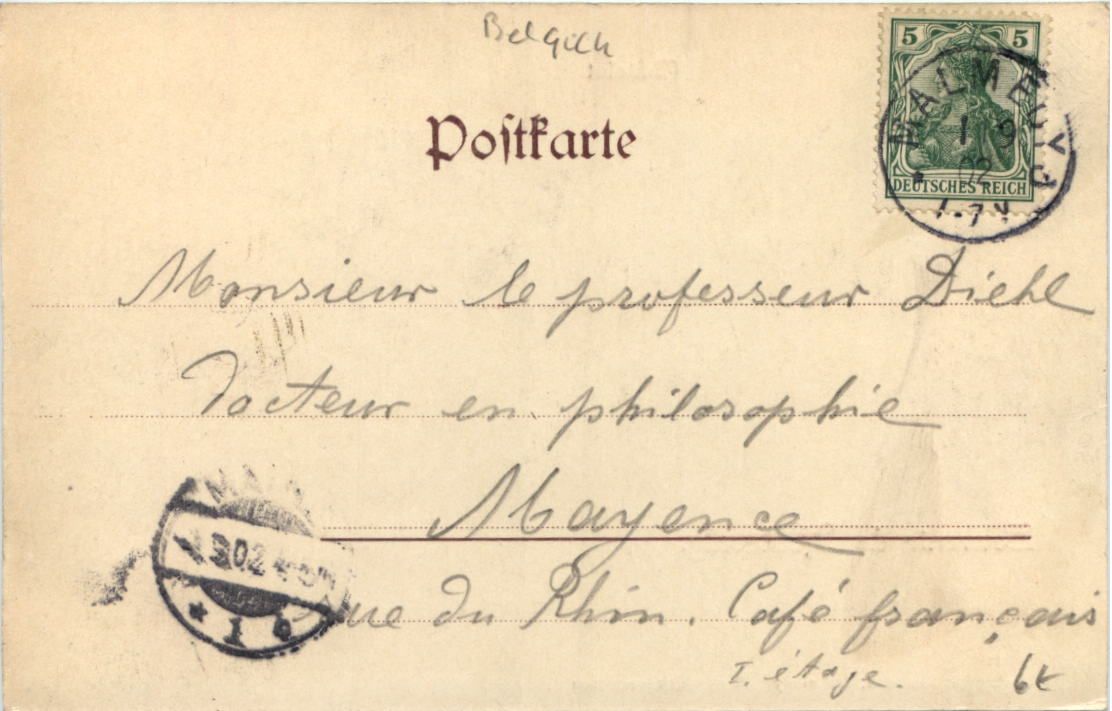 Belgien
Postkarte
5 5
DEUTSCHES REICH
MALMEDY
1 9
02
7-
Monsieur le professeur Diehl
Docteur en philosophie
Mayence
MAIN
.9.02.4-5N
* 1
rue du Rhin. Café français
I. étage.
6t